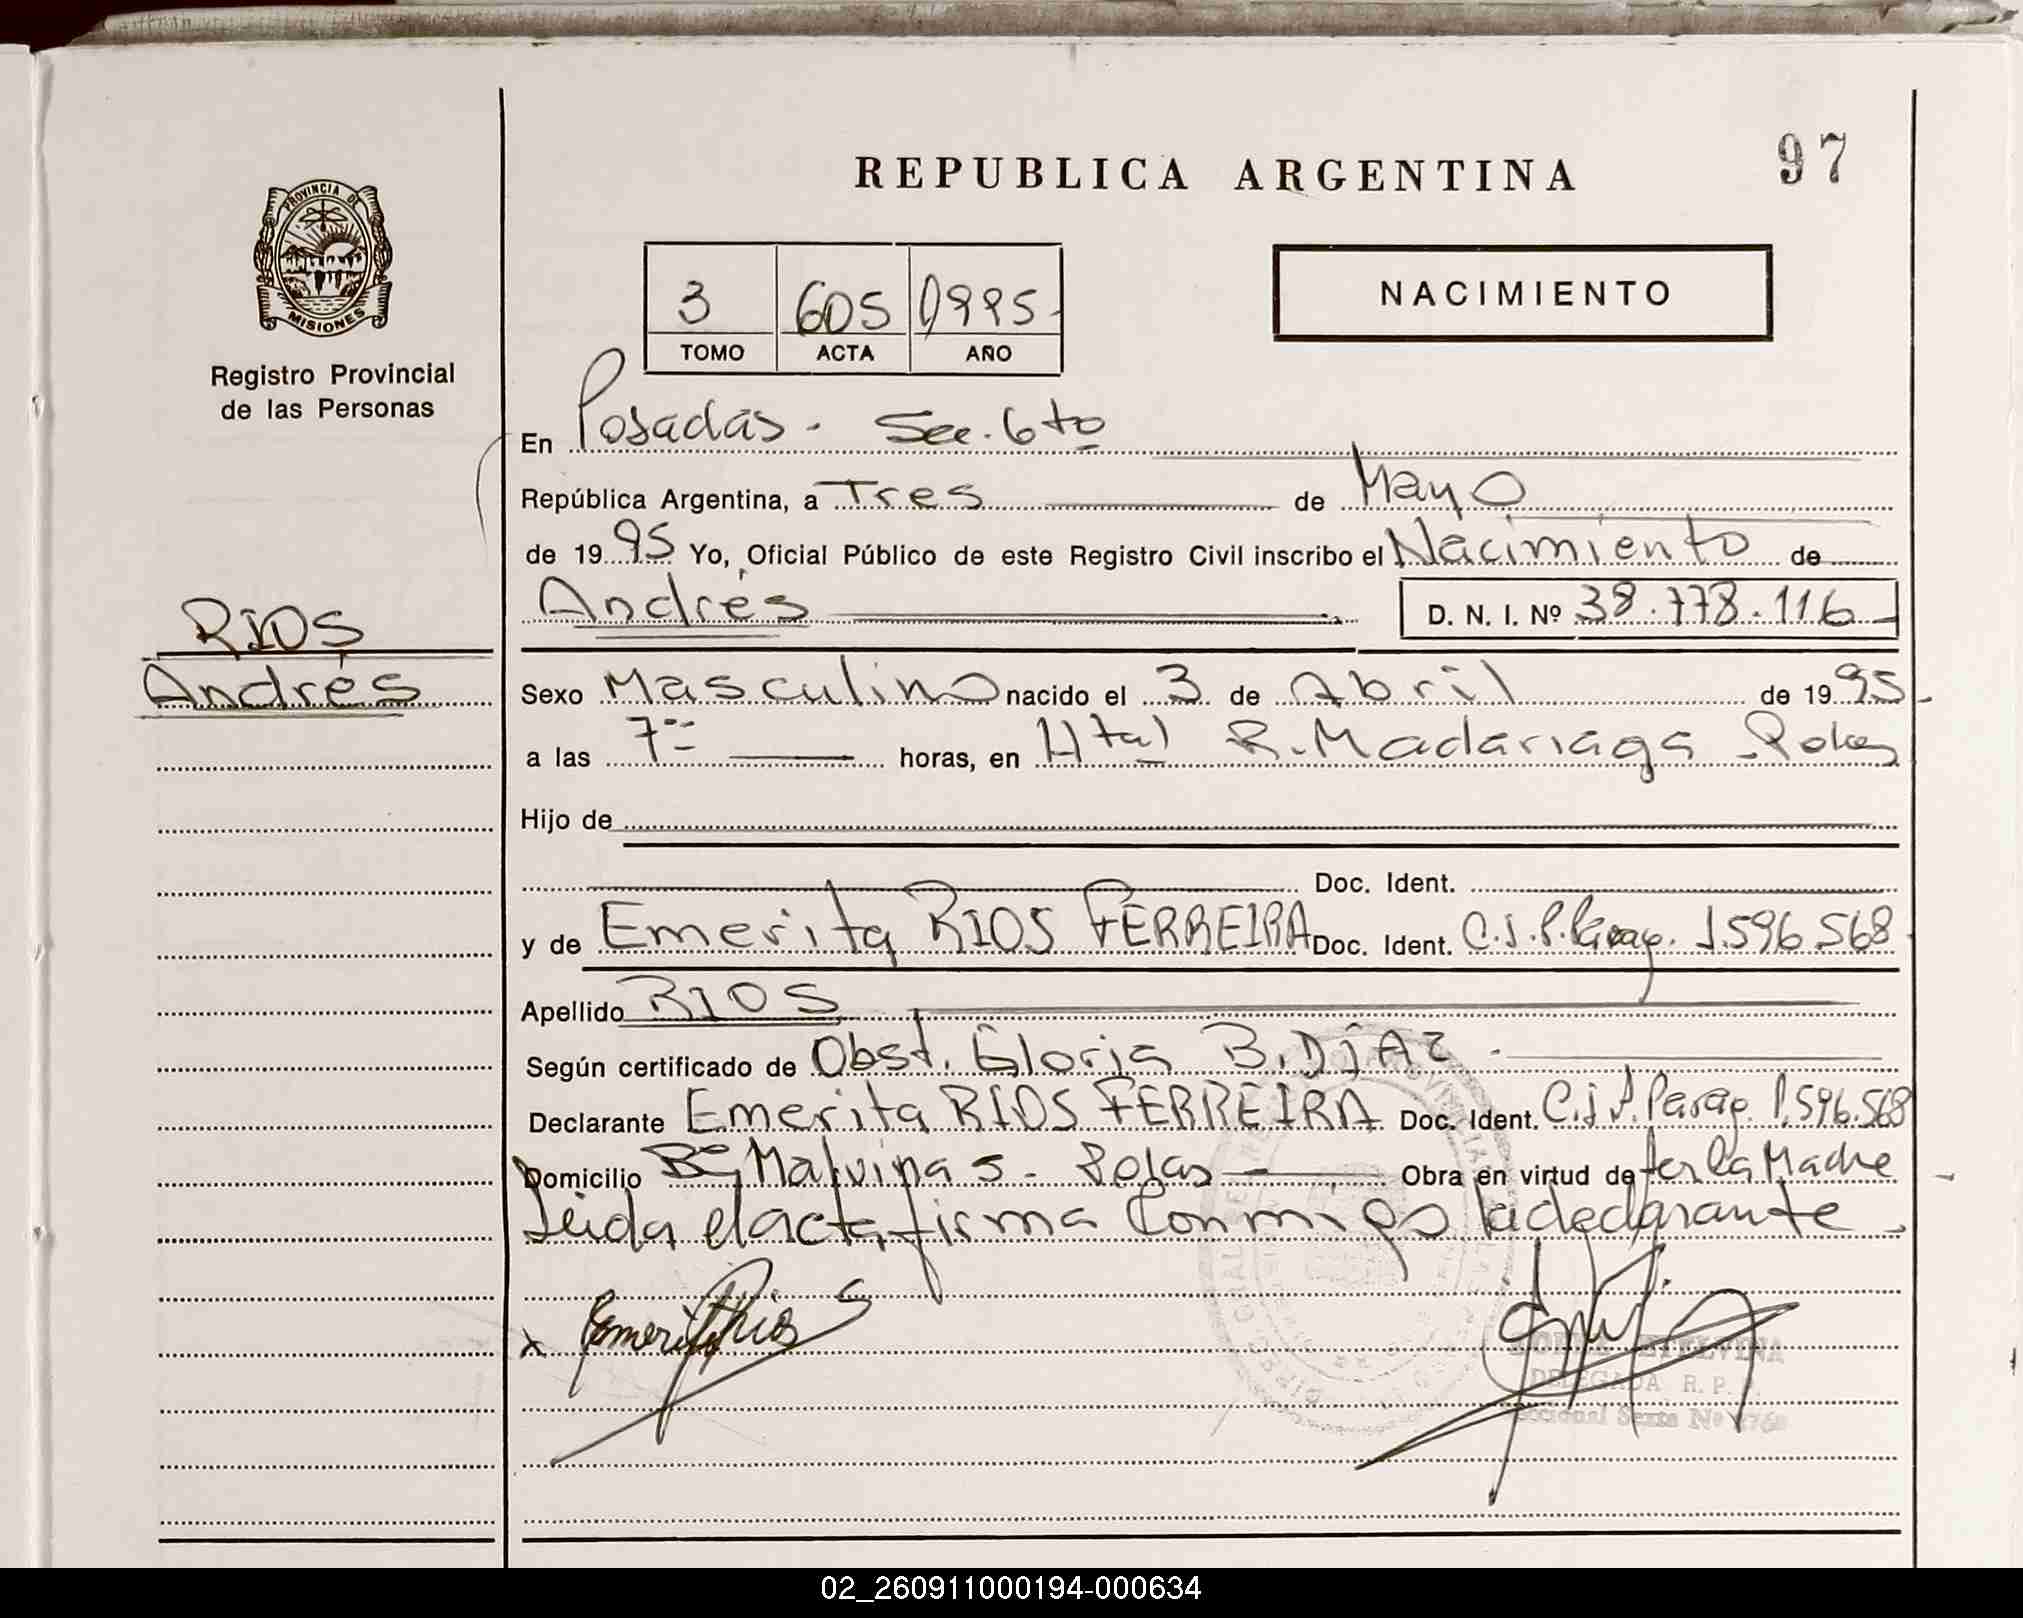 97
REPUBLICA ARGENTINA
PROVINCIA DE
MISIONES
Registro Provincial
de las Personas
NACIMIENTO
3 605 1995
TOMO ACTA AÑO
En Posadas - Sec. 6to
República Argentina, a Tres de Mayo
de 1995 Yo, Oficial Público de este Registro Civil inscribo el Nacimiento de
Andrés D. N. I. Nº 38.778.116
RIOS
Andrés
Sexo Masculino nacido el 3 de Abril de 1995
a las 7 horas, en Htal R. Madariaga
Hijo de
Doc. Ident.
y de Emerita RIOS FERREIRA Doc. Ident. C.I.P. Parag. 1.596.568
Apellido RIOS
Según certificado de Obst. Gloria B. DIAZ
Declarante Emerita RIOS FERREIRA Doc. Ident. C.I.P. Parag. 1.596.568
Domicilio Bº Malvinas - Obra en virtud de ser la Madre
Leida el acta firma Conmigo la declarante
x Emerita Rios
ETELVINA
DELEGADA R. P. P.
Seccional Sexta Nº
02_260911000194-000634